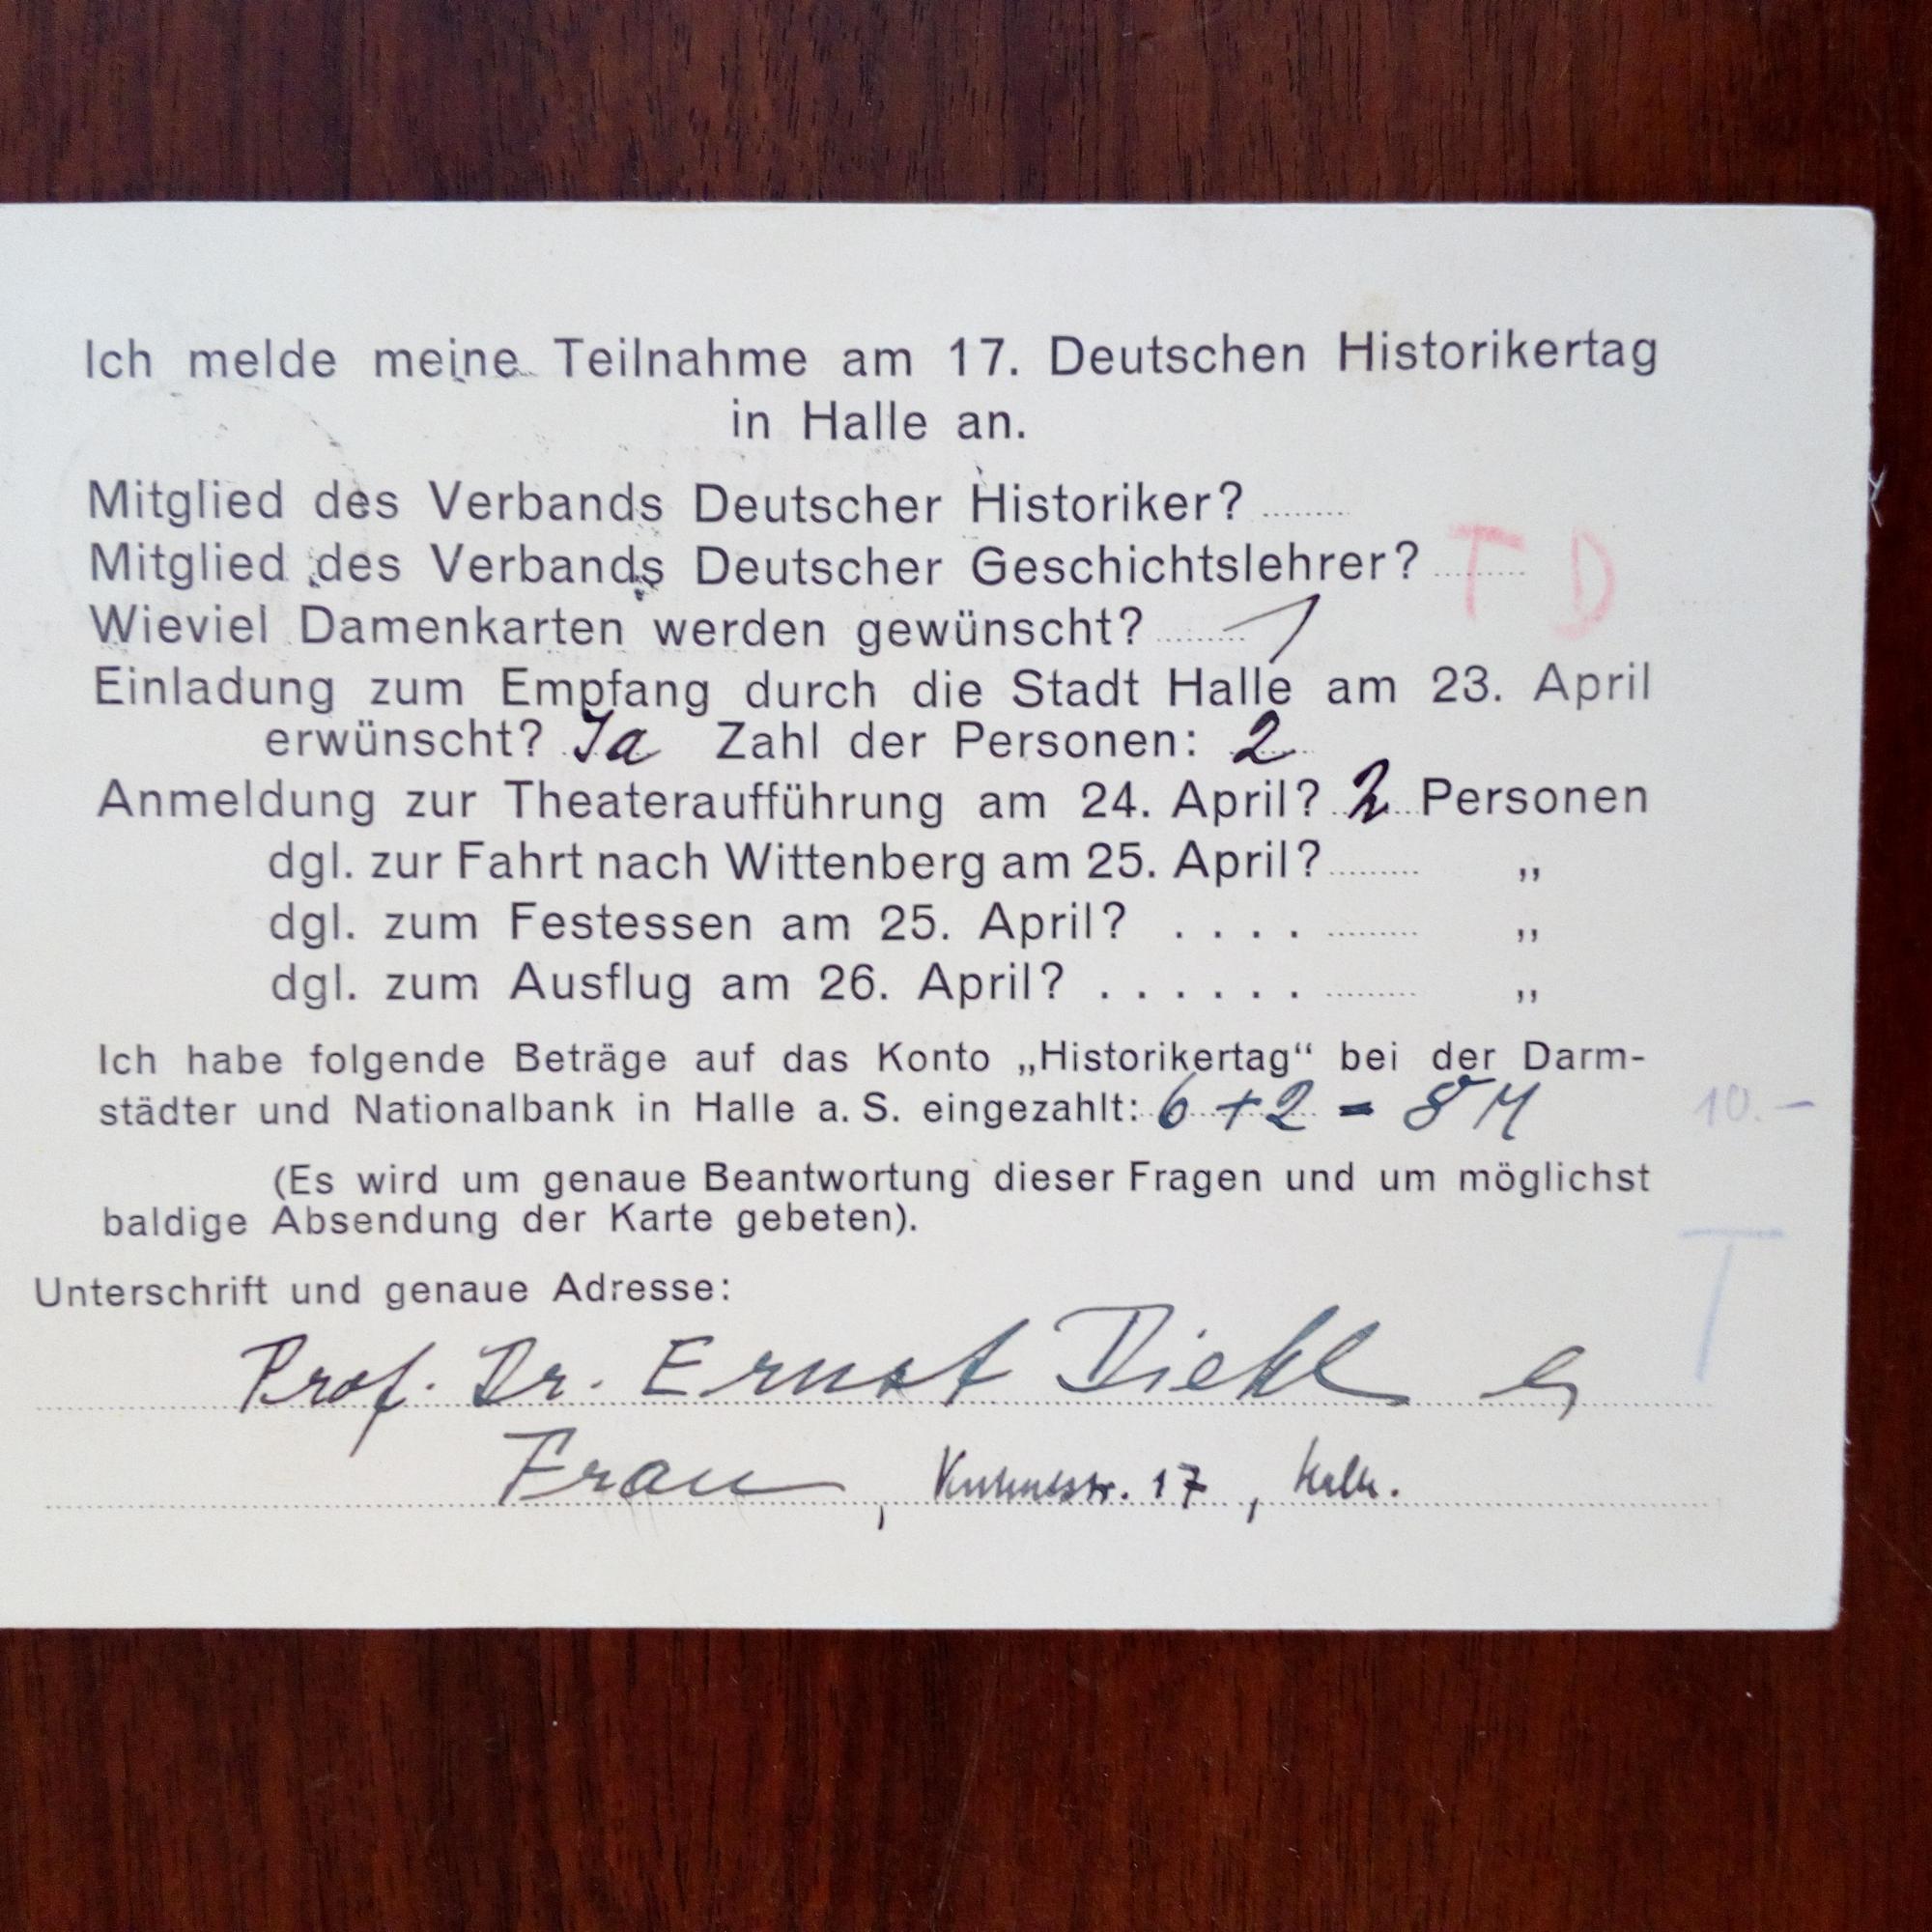 Ich melde meine Teilnahme am 17. Deutschen Historikertag
in Halle an.
Mitglied des Verbands Deutscher Historiker?
Mitglied des Verbands Deutscher Geschichtslehrer?
T D
Wieviel Damenkarten werden gewünscht? 1
Einladung zum Empfang durch die Stadt Halle am 23. April
erwünscht? Ja Zahl der Personen: 2
Anmeldung zur Theateraufführung am 24. April? 2 Personen
dgl. zur Fahrt nach Wittenberg am 25. April? ........ „
dgl. zum Festessen am 25. April? . . . . ........ „
dgl. zum Ausflug am 26. April? . . . . . . ........ „
Ich habe folgende Beträge auf das Konto „Historikertag“ bei der Darm-
städter und Nationalbank in Halle a. S. eingezahlt: 6 + 2 = 8 M
10.–
(Es wird um genaue Beantwortung dieser Fragen und um möglichst
baldige Absendung der Karte gebeten).
T
Unterschrift und genaue Adresse:
Prof. Dr. Ernst Diehl
Frau, 17, Halle.